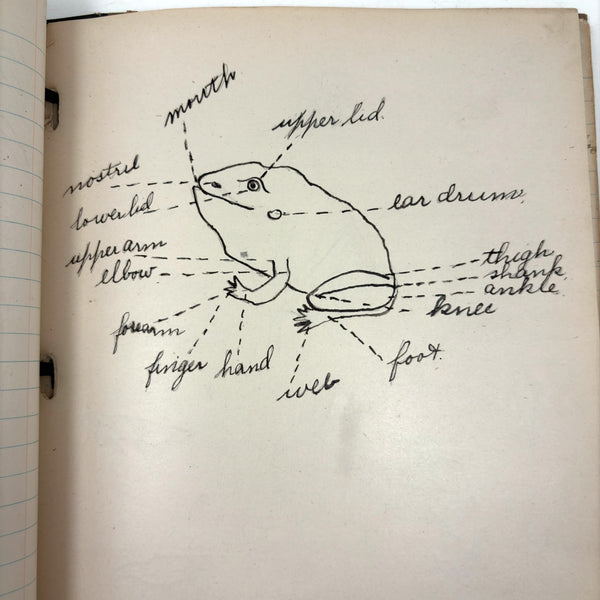 mouth
upper lid.
nostril
lower lid
ear drum.
upper arm
elbow
thigh
shank
ankle
knee
forearm
finger
hand
web
foot.